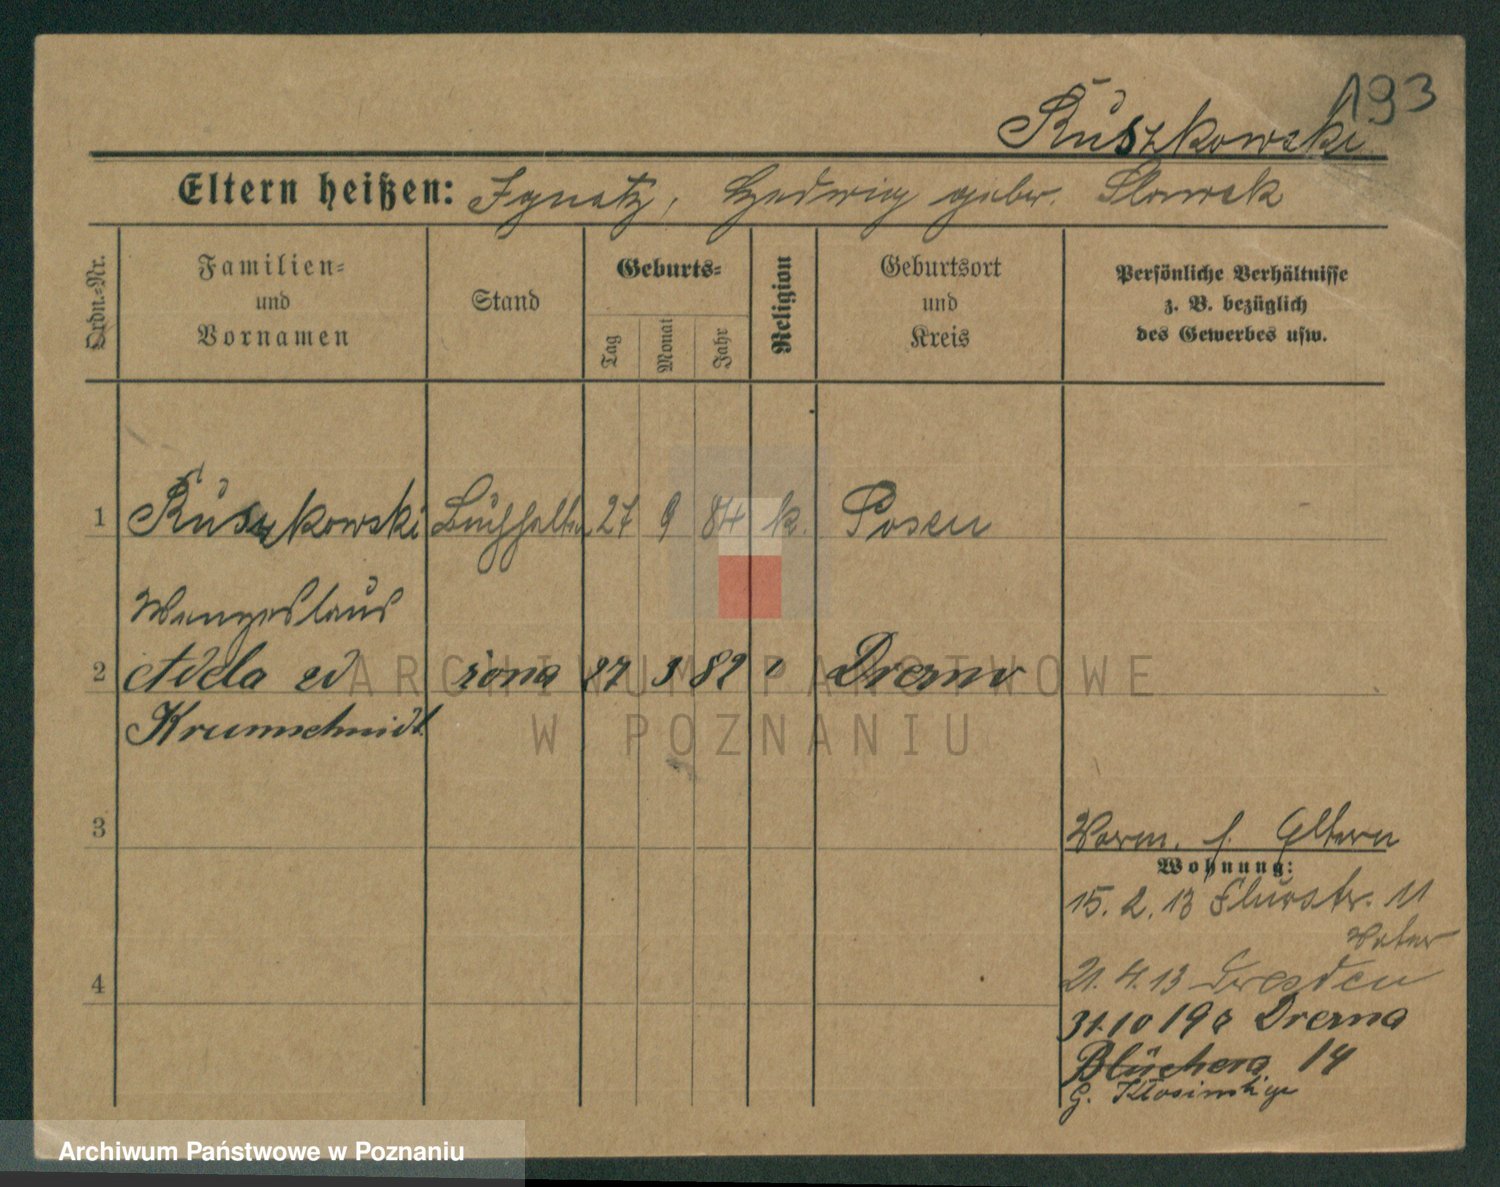 193
Ruszkowski
Eltern heißen: Ignatz, Hedwig gebor. Slownek
Ordn.-Nr.
Familien-
und
Vornamen
Stand
Geburts-
Tag
Monat
Jahr
Religion
Geburtsort
und
Kreis
Persönliche Verhältnisse
z. B. bezüglich
des Gewerbes usw.
1 Ruszkowski Buchhalter 27 9 84 k. Posen
Wenzeslaus
2 Adela zd żona 27 3 82 Drezno
Krumschmidt
3
4
Vorm. f. Eltern
Wohnung:
15. 2. 13 Flurstr. 11
Vater
21. 4. 13 Dresden
31.10 19 Drezna
Blüchera 14
ARCHIWUM PAŃSTWOWE
W POZNANIU
Archiwum Państwowe w Poznaniu